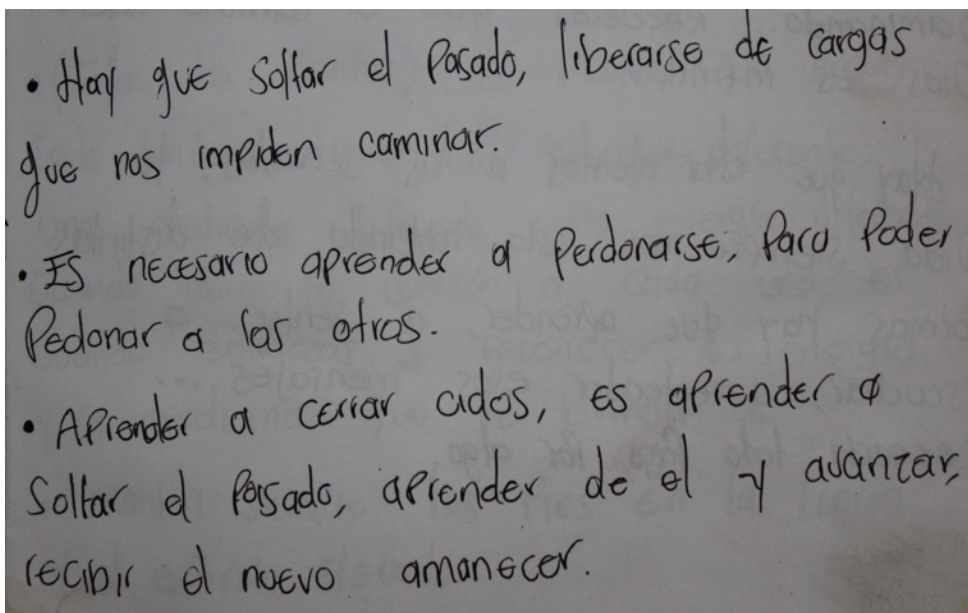 • Hay que soltar el Pasado, liberarse de cargas
que nos impiden caminar.
• Es necesario aprender a Perdonarse, Para Poder
Pedonar a los otros.
• Aprender a cerrar ciclos, es aprender a
Soltar el Pasado, aprender de el y avanzar,
recibir el nuevo amanecer.